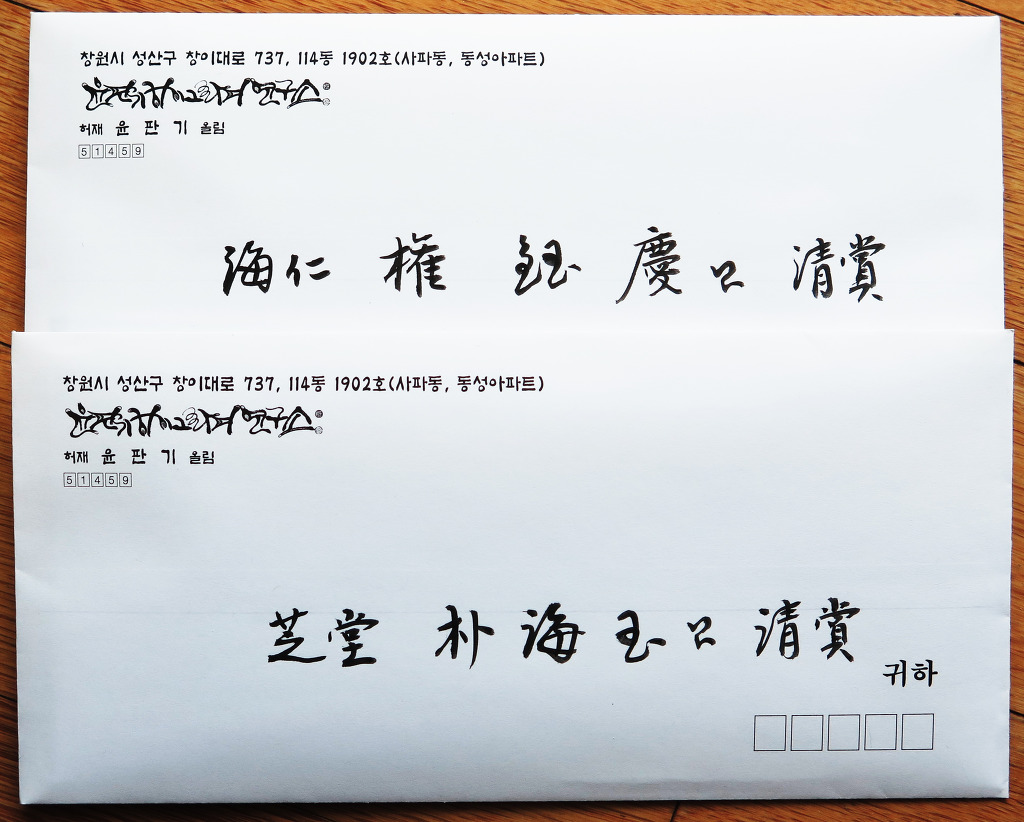 창원시 성산구 창이대로 737, 114동 1902호(사파동, 동성아파트)
윤판기한글서예연구소
허재 윤 판 기 올림
51459
海仁 權 鈺 慶 님 清賞
창원시 성산구 창이대로 737, 114동 1902호(사파동, 동성아파트)
허재 윤 판 기 올림
51459
芝堂 朴 海 玉 님 清賞
귀하